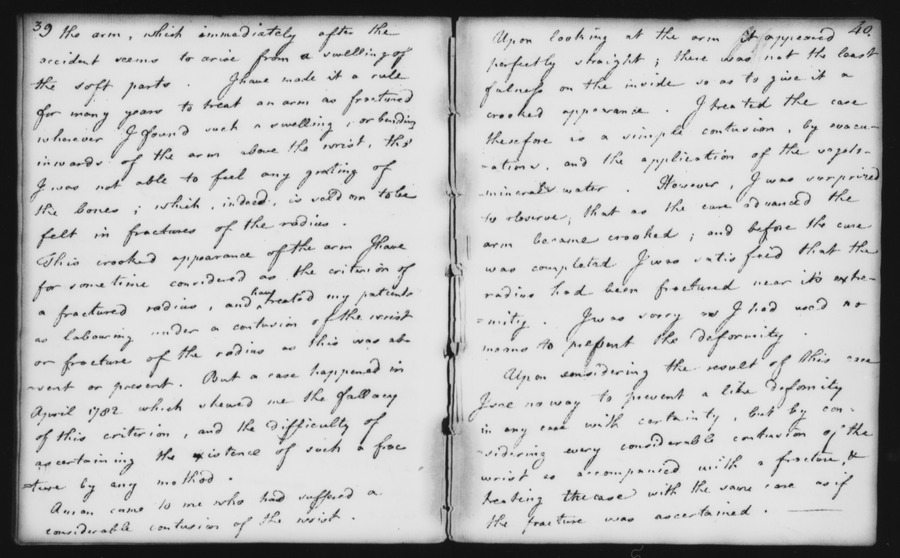 39
the arm, which immediately after the
accident seems to arise from a swelling of
the soft parts. I have made it a rule
for many years to treat an arm as fractured
whenever I found such a swelling, or bending
inwards of the arm above the wrist, tho'
I was not able to feel any grating of
the bones; which, indeed, is seldom to be
felt in fractures of the radius.
This crooked appearance of the arm I have
for some time considered as the criterion of
a fractured radius, and have treated my patients
as labouring under a contusion of the wrist
or fracture of the radius as this was ab-
-sent or present. But a case happened in
April 1782 which shewed me the fallacy
of this criterion, and the difficulty of
ascertaining the existence of such a frac
=ture by any method.
A man came to me who had suffered a
considerable contusion of the wrist.
40
Upon looking at the arm It appeared
perfectly straight; there was not the least
fulness on the inside so as to give it a
crooked appearance. I treated the case
therefore as a simple contusion, by evacu-
-ations, and the application of the vegeto-
-mineral water. However, I was surprized
to observe, that as the cure advanced the
arm became crooked; and before the cure
was completed I was satisfied that the
radius had been fractured near its extre-
-mity. I was sorry as I had used no
means to prevent the deformity.
Upon considering the result of this case
I see no way to prevent a like deformity
in any case with certainty, but by con-
-sidering every considerable contusion of the
wrist as accompanied with a fracture, &
treating the case with the same care as if
the fracture was ascertained.